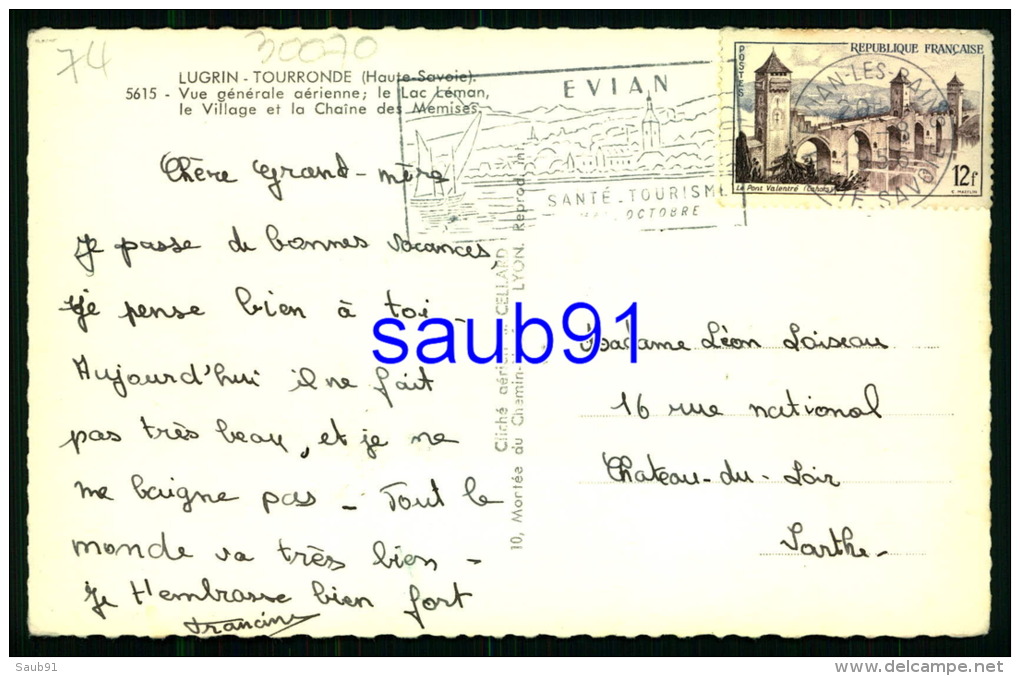 74
30070
LUGRIN - TOURRONDE (Haute-Savoie).
5615 - Vue générale aérienne; le Lac Léman,
le Village et la Chaîne des Mémises.
EVIAN
SANTÉ_TOURISME
OCTOBRE
POSTES
REPUBLIQUE FRANÇAISE
Le Pont Valentré (Cahors)
12f
Chère Grand-mère
Je passe de bonnes vacances,
je pense bien à toi -
Aujourd'hui il ne fait
pas très beau, et je ne
me baigne pas - Tout le
monde va très bien -
Je t'embrasse bien fort
Francine
Cliché aérien CELLARD
10, Montée du Chemin LYON. Reprod. int.
saub91
Madame Léon Loiseau
16 rue national
Chateau-du-Loir
Sarthe-
Saub91
www.delcampe.net